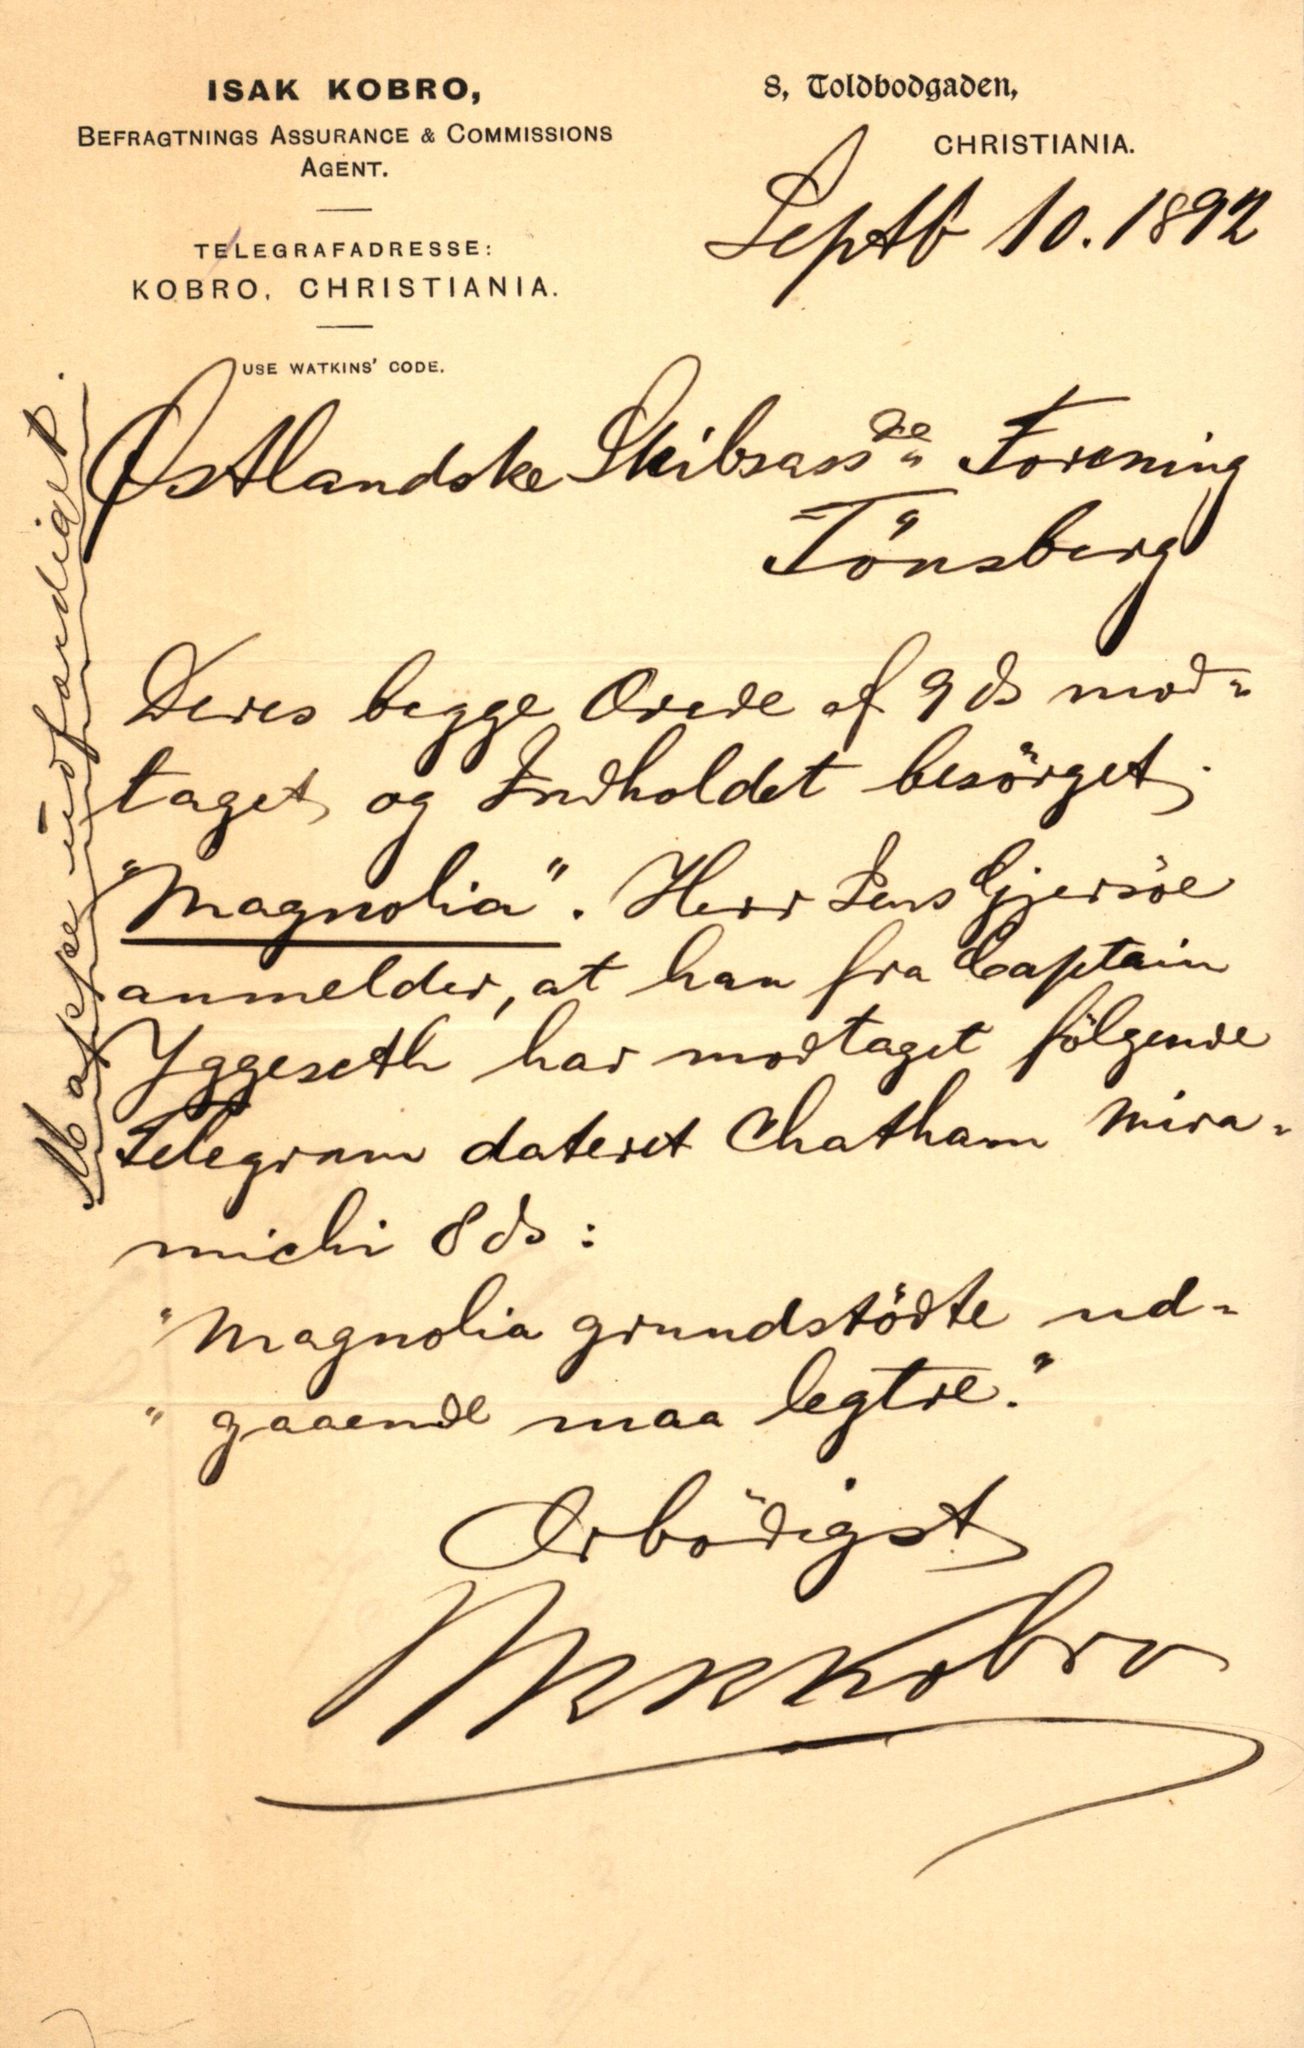 ISAK KOBRO,
BEFRAGTNINGS ASSURANCE & COMMISSIONS
AGENT.
TELEGRAFADRESSE:
KOBRO, CHRISTIANIA.
USE WATKINS' CODE.
8, Toldbodgaden,
CHRISTIANIA.
Septb 10. 1892
Østlandske Skibsassce Forening
Tönsberg
Deres begge Ærede af 9 ds mod-
taget og Indholdet besörget.
"Magnolia". Herr Jens Gjersöe
anmelder, at han fra Captain
Yggeseth har modtaget fölgende
Telegram dateret Chatham Mira-
michi 8 ds:
"Magnolia grundstödte ud-
" gaaende maa legtre."
Ærbödigst
Isak Kobro
Mappe udfærdiget.